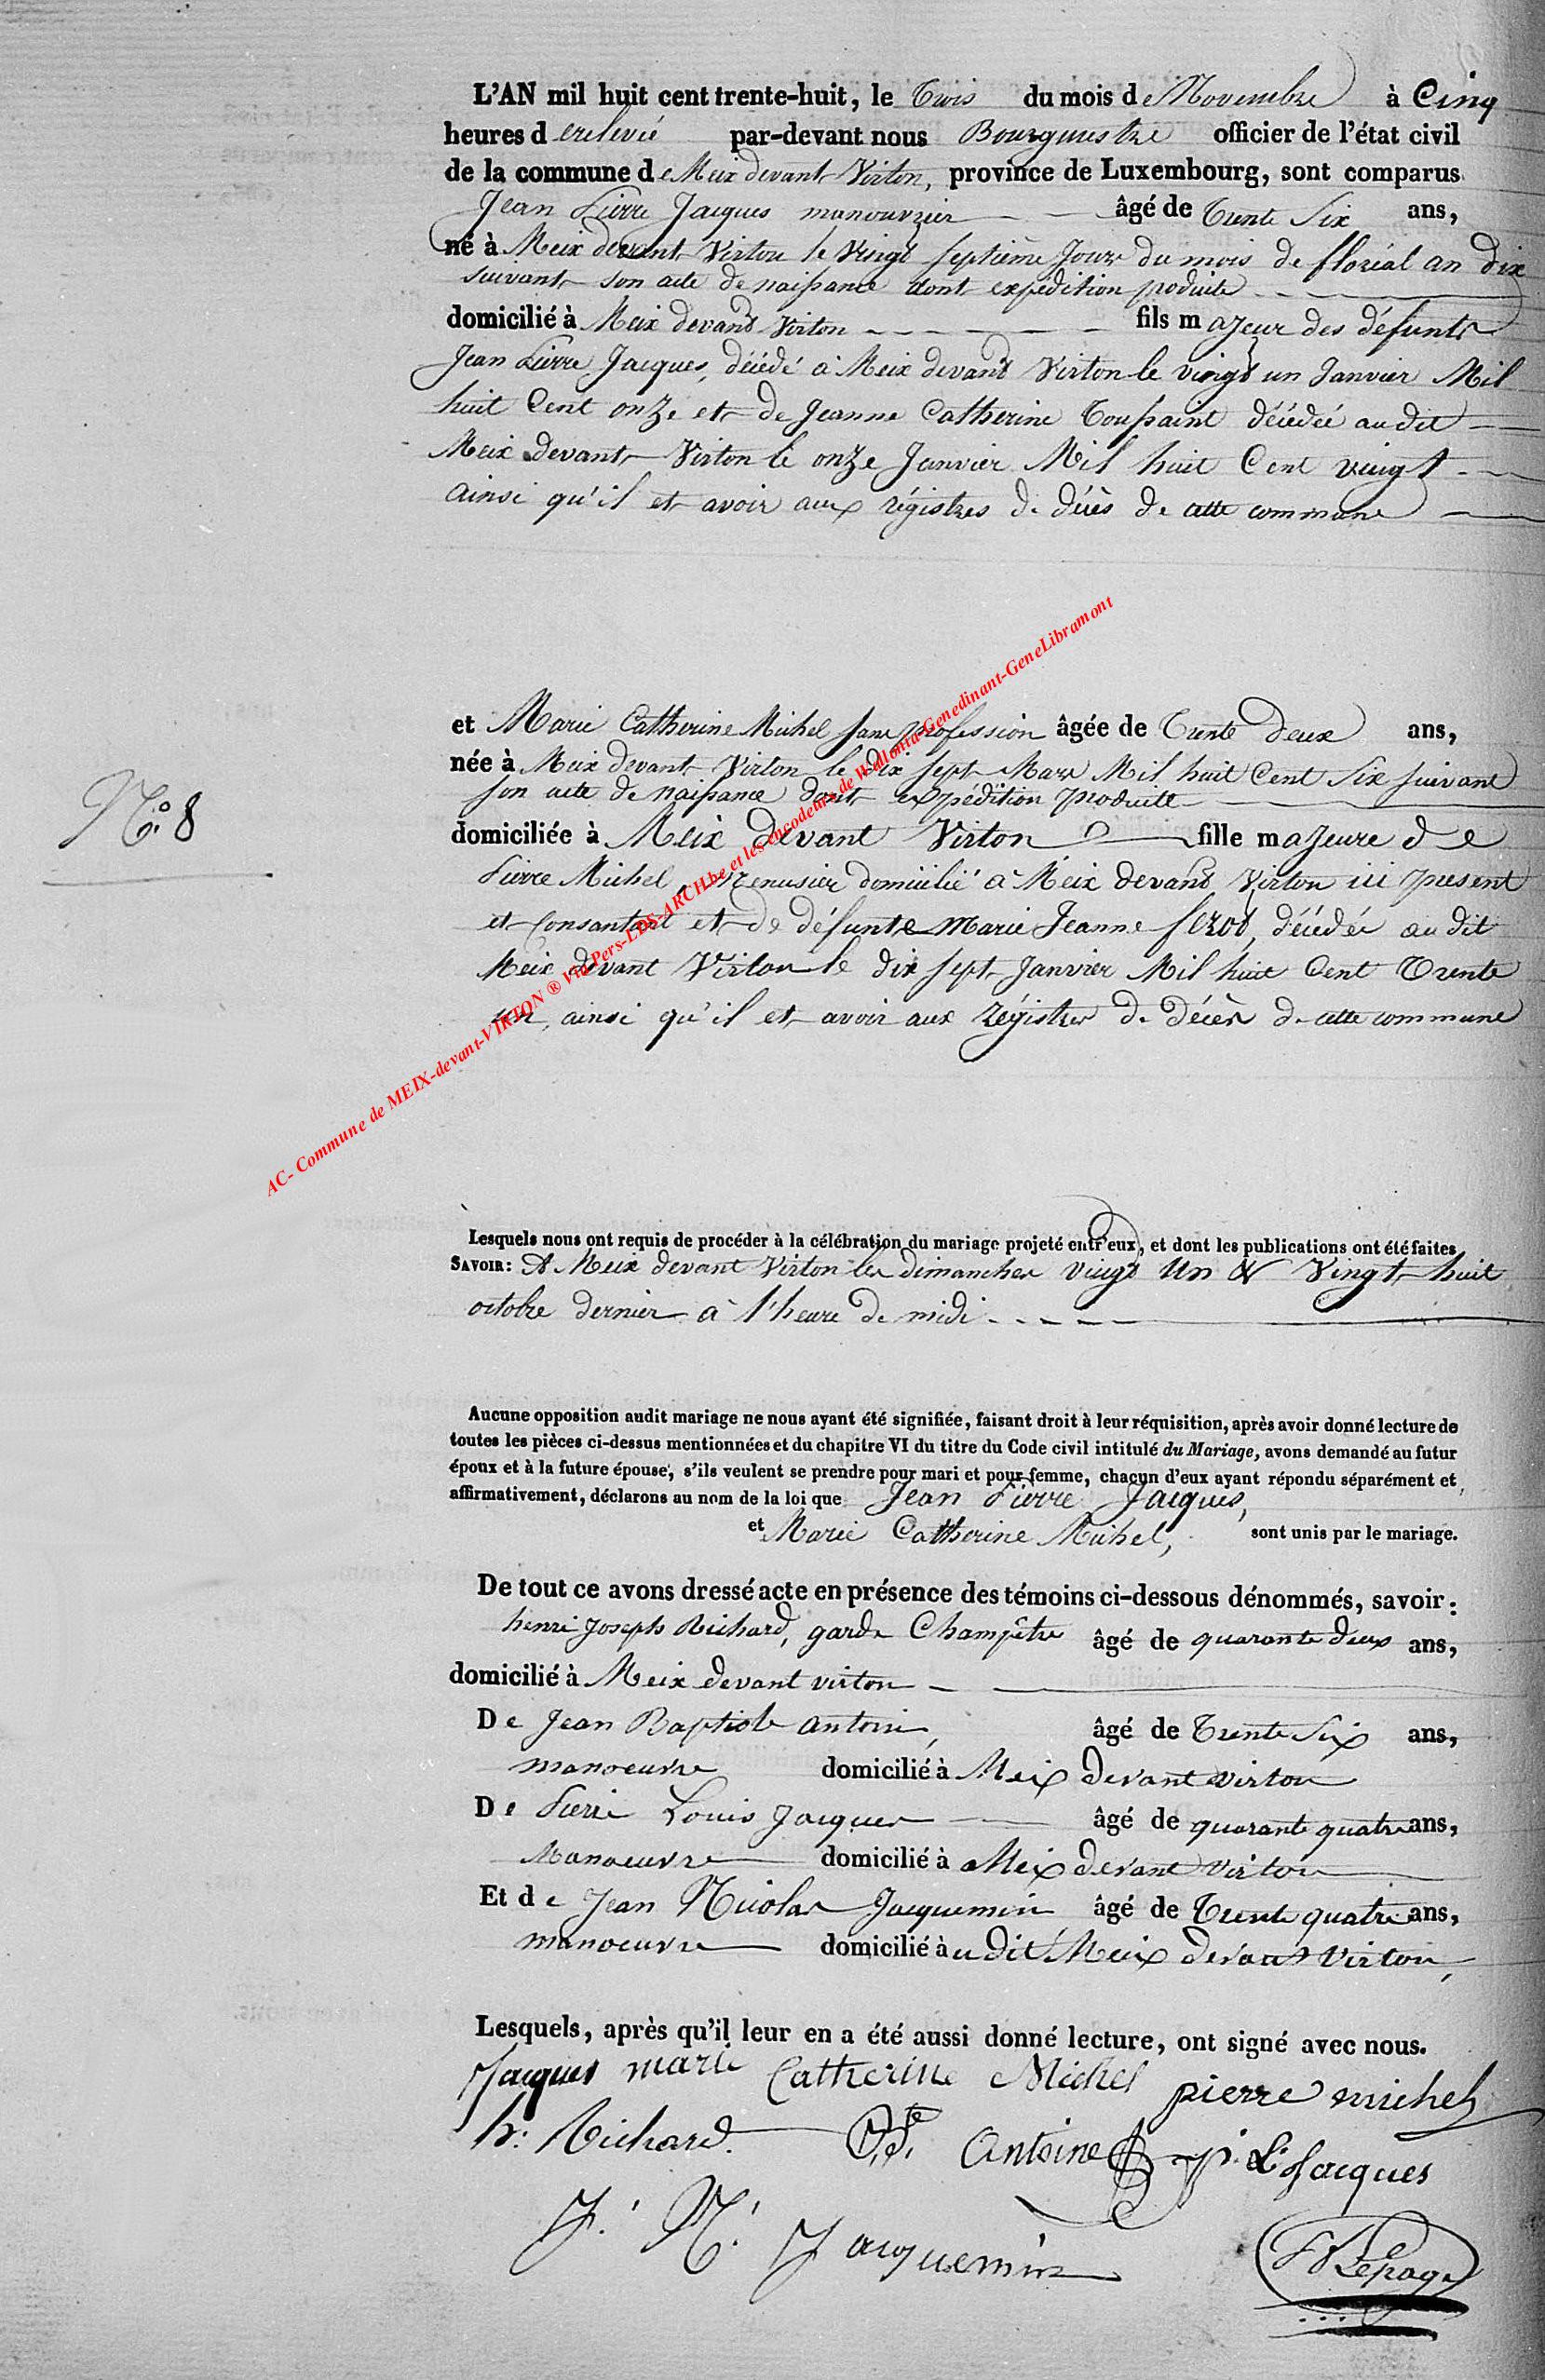 L'AN mil huit cent trente-huit, le Trois du mois de Novembre à Cinq
heures de relevée par-devant nous Bourgmestre officier de l'état civil
de la commune de Meix devant Virton, province de Luxembourg, sont comparus
Jean Pierre Jacques manouvrier âgé de Trente Six ans,
né à Meix devant Virton le Vingt Septième Jour du mois de floréal an dix
suivant son acte de naissance dont expédition produite
domicilié à Meix devant Virton fils majeur des défunts
Jean Pierre Jacques, décédé à Meix devant Virton le vingt un Janvier Mil
huit Cent onze et de Jeanne Catherine Toussaint décédée au dit
Meix devant Virton le onze Janvier Mil huit Cent vingt
ainsi qu'il et avoir aux régistres de décès de cette commune
et Marie Catherine Michel sans profession âgée de Trente deux ans,
née à Meix devant Virton le dix sept Mars Mil huit Cent Six suivant
son acte de naissance dont expédition produite
N.º 8
domiciliée à Meix devant Virton fille majeure de
Pierre Michel, Menusier domicilié à Meix devant Virton ici present
et consantant et de défunte Marie Jeanne décédée au dit
Meix devant Virton le dix sept Janvier Mil huit Cent Trente
un, ainsi qu'il et avoir aux régistres de décès de cette commune
AC- Commune de MEIX-devant-VIRTON ® Via Pers-LDS-ARCH.be et les encodeurs de Wallonia-Genedinant-GeneLibramont
Lesquels nous ont requis de procéder à la célébration du mariage projeté entr'eux, et dont les publications ont été faites
SAVOIR: A Meix devant Virton les dimanches vingt Un & Vingt huit
octobre dernier à l'heure de midi
Aucune opposition audit mariage ne nous ayant été signifiée, faisant droit à leur réquisition, après avoir donné lecture de
toutes les pièces ci-dessus mentionnées et du chapitre VI du titre du Code civil intitulé du Mariage, avons demandé au futur
époux et à la future épouse, s'ils veulent se prendre pour mari et pour femme, chacun d'eux ayant répondu séparément et
affirmativement, déclarons au nom de la loi que Jean Pierre Jacques,
et Marie Catherine Michel, sont unis par le mariage.
De tout ce avons dressé acte en présence des témoins ci-dessous dénommés, savoir:
henri Joseph Richard, garde Champêtre âgé de quarante deux ans,
domicilié à Meix devant virton
De Jean Baptiste antoine, âgé de Trente Six ans,
manoeuvre domicilié à Meix devant virton
De Pierre Louis Jacques âgé de quarante quatre ans,
Manoeuvre domicilié à Meix devant virton
Et de Jean Nicolas Jacquemin âgé de Trente quatre ans,
manoeuvre domicilié au dit Meix devant Virton,
Lesquels, après qu'il leur en a été aussi donné lecture, ont signé avec nous.
Jacques marie Catherine Michel pierre michel
h: Richard. Antoine p. L. Jacques
J. N. Jacquemin
Lepage